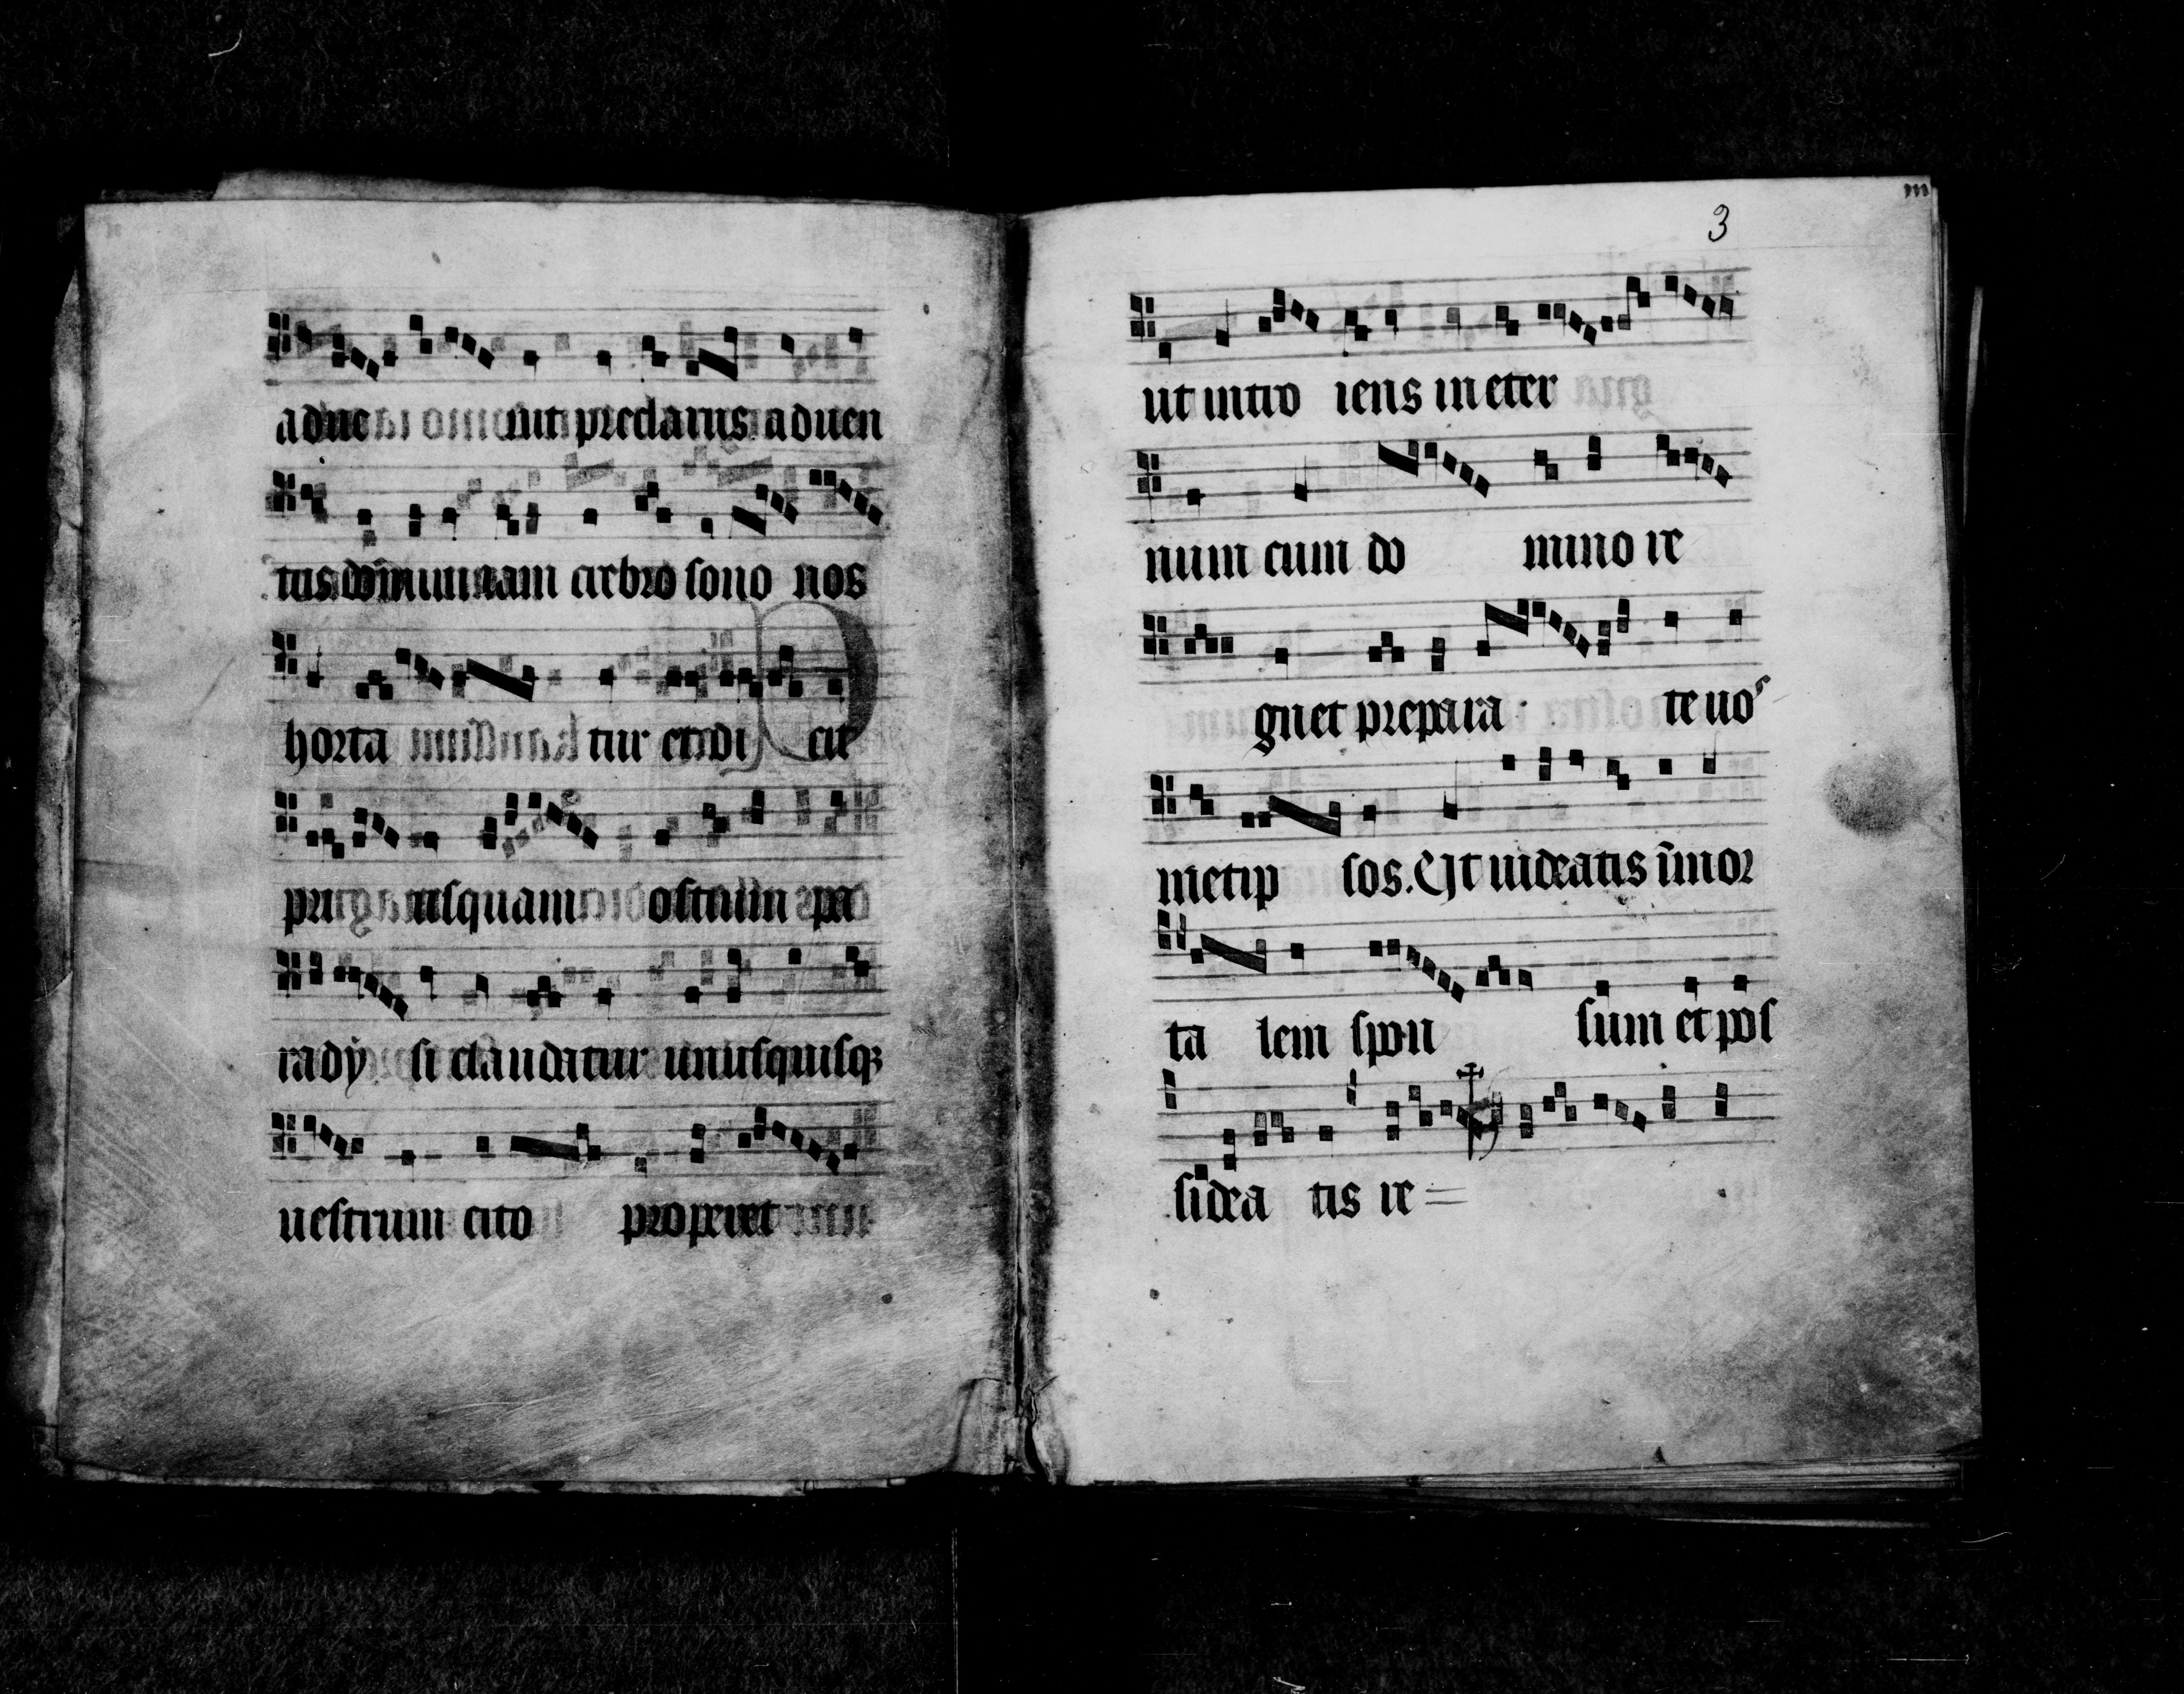 adue nit preclarus aduen
tus domini nam crebro sono nos
horta tur et di cit
pri usquam ostium pa
radÿ si claudatur unusquisqȝ
uestrum cito properet
3
m
ut intro iens in eter
num cum do mino re
gnet prepara te uos
metip sos. Et uideatis īmor
ta lem spon sum et pos
sidea tis re =